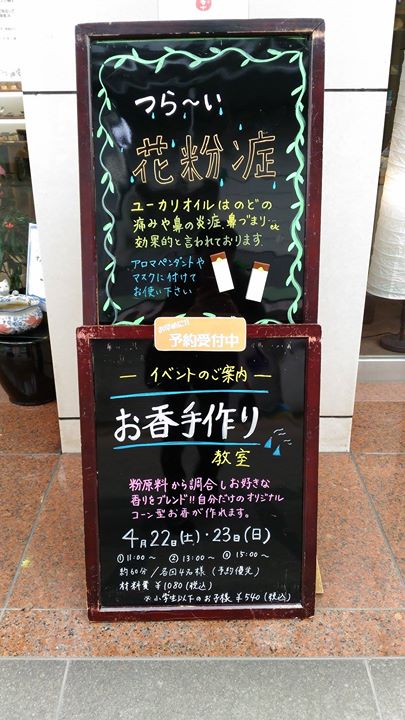 つら〜い
花粉症
ユーカリオイルはのどの
痛みや鼻の炎症、鼻づまり…etc
効果的と言われております
アロマペンダントや
マスクに付けて
お使い下さい
お早めに!!
予約受付中
― イベントのご案内 ―
お香手作り
教室
粉原料から調合しお好きな
香りをブレンド!!自分だけのオリジナル
コーン型お香が作れます。
4月22日(土)・23日(日)
①11:00〜 ②13:00〜 ③15:00〜
約60分/各回4名様(予約優先)
材料費 ¥1080(税込)
※小学生以下のお子様 ¥540(税込)